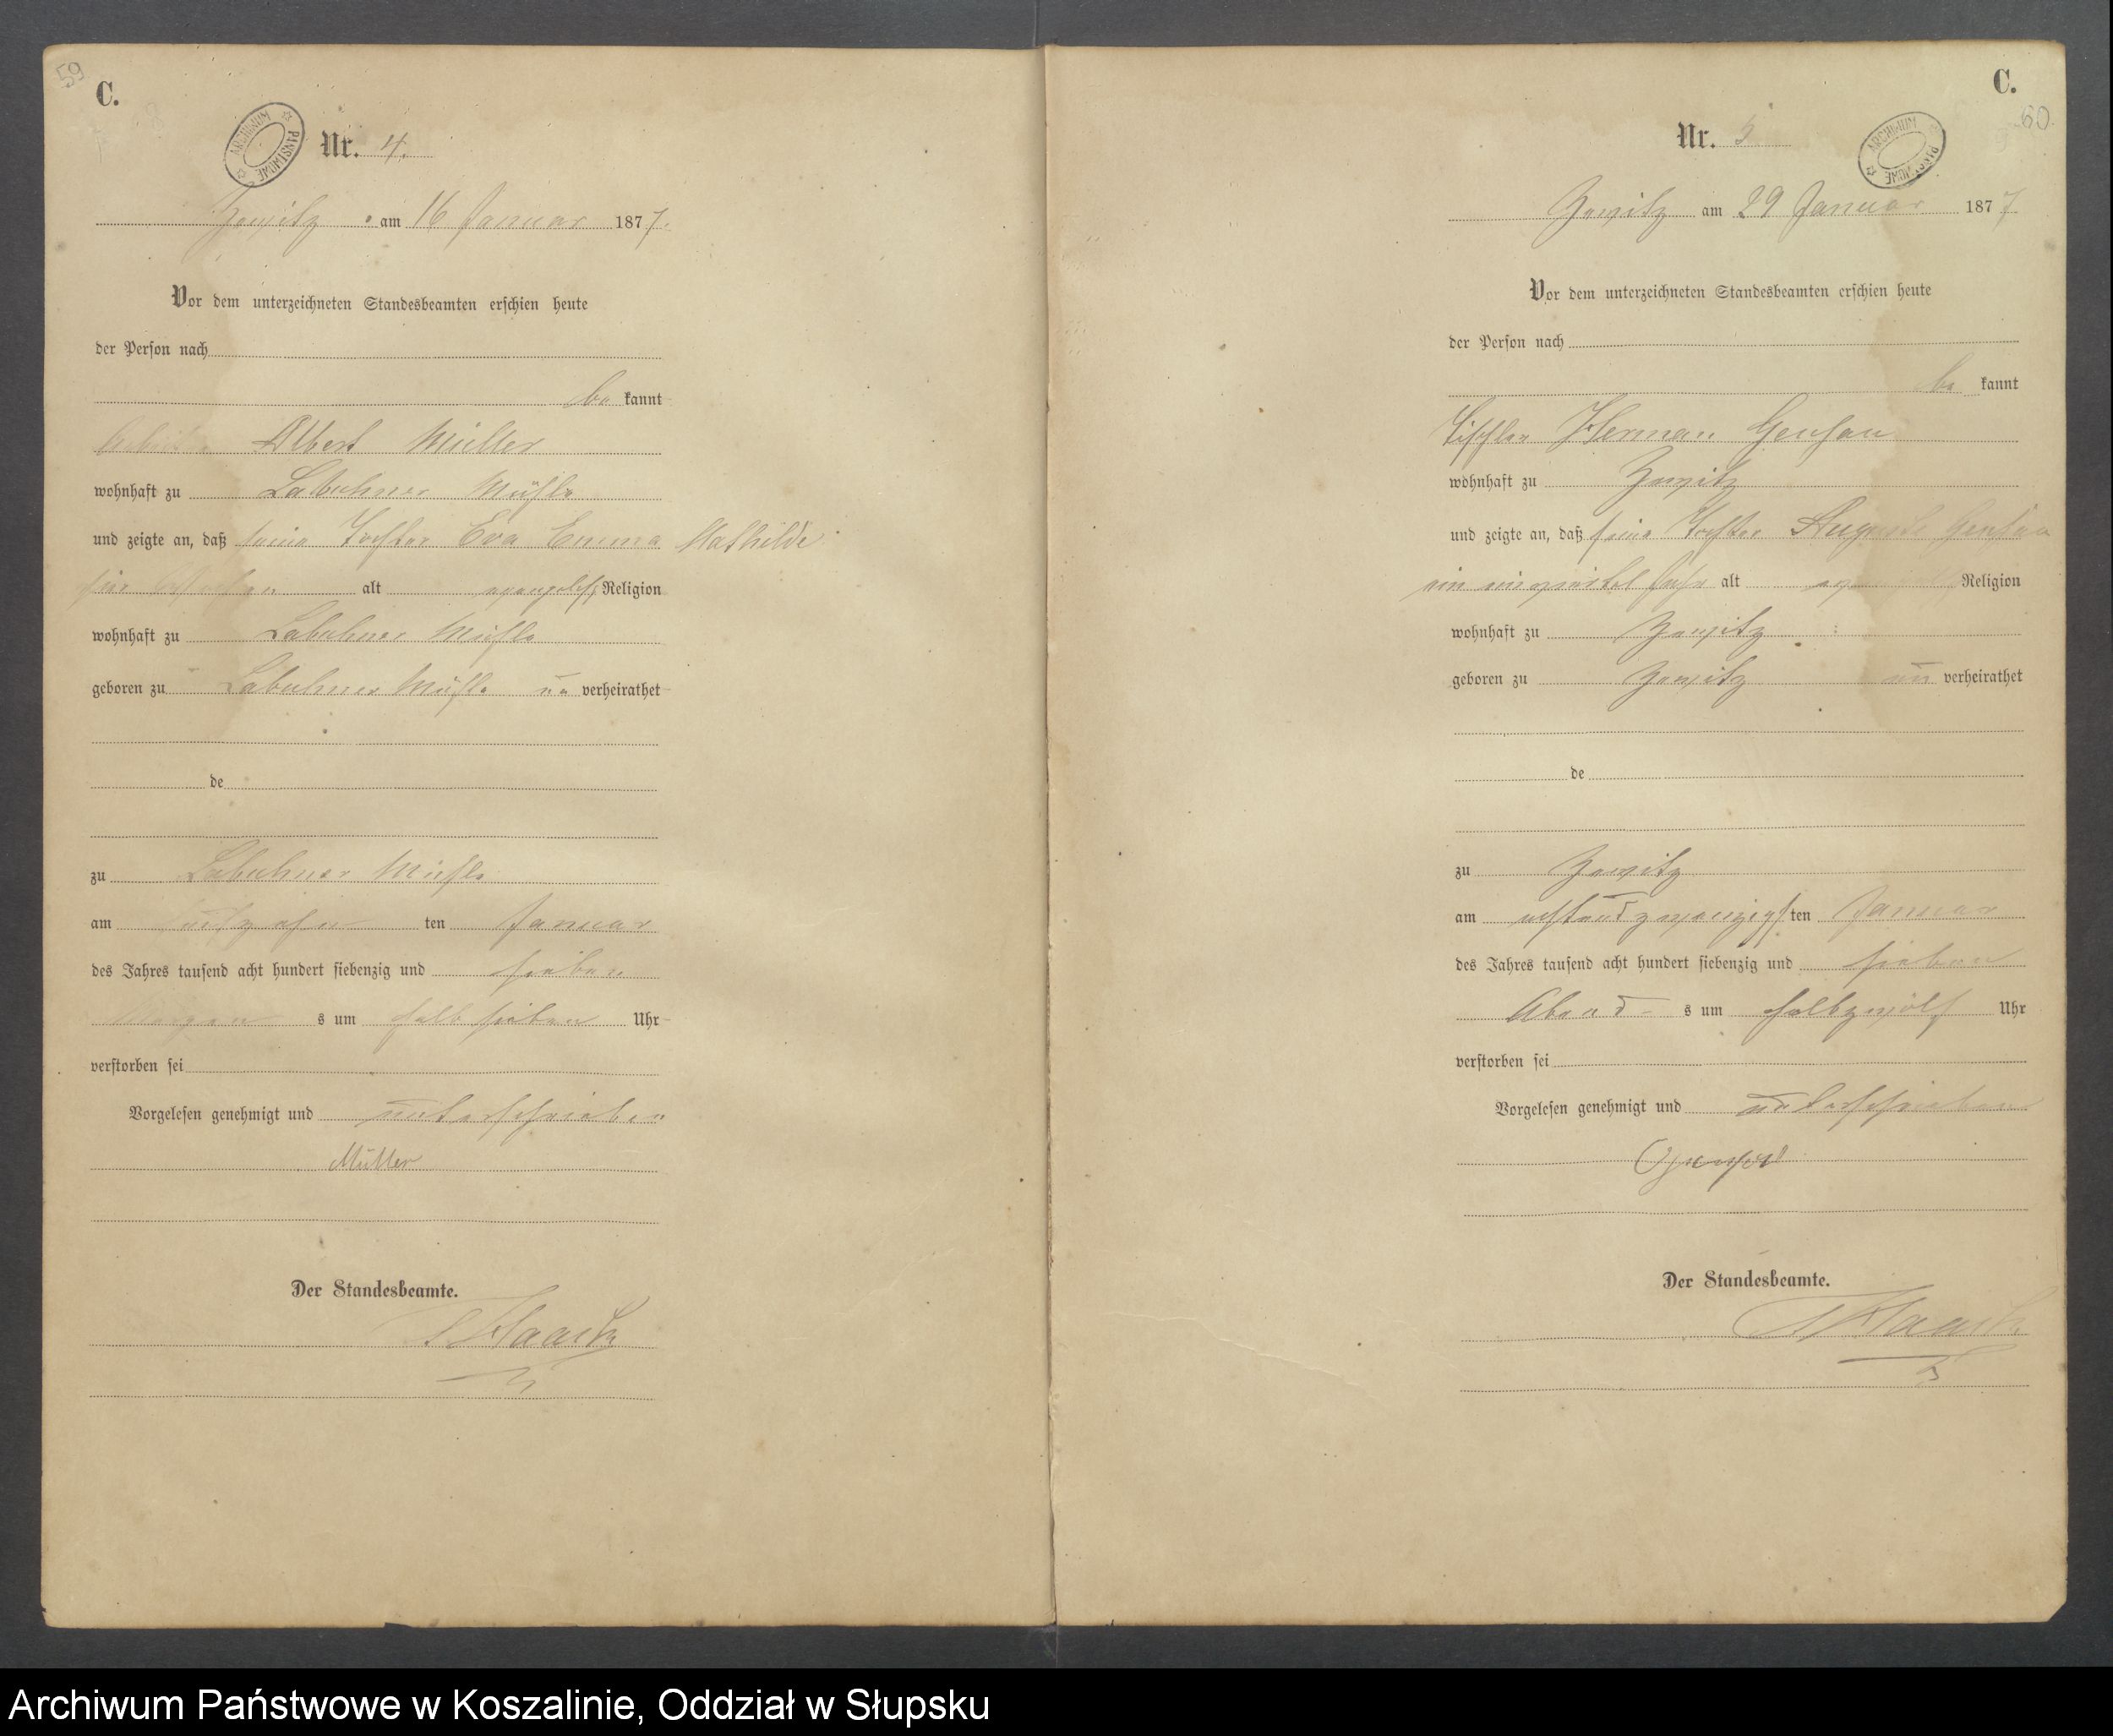 59
C.
ARCHIWUM PAŃSTWOWE
Nr. 4.
Zewitz am 16 Januar 1877.
Vor dem unterzeichneten Standesbeamten erschien heute
der Person nach
be kannt
Albert Müller
wohnhaft zu Labuhner Mühle
und zeigte an, daß seine Tochter Eva Emma Mathilde
alt evangelisch Religion
wohnhaft zu Labuhner Mühle
geboren zu Labuhner Mühle un verheirathet
de
zu Labuhner Mühle
am ten Januar
des Jahres tausend acht hundert siebenzig und sieben
Morgen s um halb sieben Uhr
verstorben sei
Vorgelesen genehmigt und unterschrieben
Müller
Der Standesbeamte.
C.
60
ARCHIWUM PAŃSTWOWE
Nr. 5
Zewitz am 29 Januar 1877
Vor dem unterzeichneten Standesbeamten erschien heute
der Person nach
be kannt
Tischler Herman Gensau
wohnhaft zu Zewitz
und zeigte an, daß seine Tochter Auguste Gensau
ein einviertel Jahr alt Religion
wohnhaft zu Zewitz
geboren zu Zewitz un verheirathet
de
zu Zewitz
am achtundzwanzigsten Januar
des Jahres tausend acht hundert siebenzig und sieben
Abend s um halbzwölf Uhr
verstorben sei
Vorgelesen genehmigt und unterschrieben
Der Standesbeamte.
Archiwum Państwowe w Koszalinie, Oddział w Słupsku